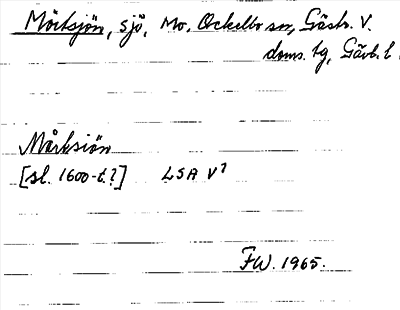 Mörksjön, sjö, Mo, Ockelbo sn, Gästr. V.
doms. tg, Gävl. l.
Mårksiön
[sl. 1600-t.?] LSA V?
FW. 1965.